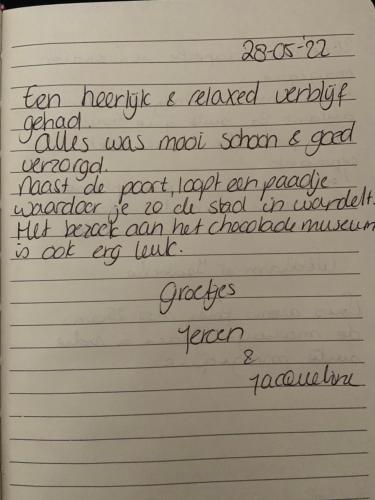 28-05-'22
Een heerlijk & relaxed verblijf
gehad.
Alles was mooi schoon & goed
verzorgd.
Naast de poort, loopt een paadje
waardoor je zo de stad in wandelt.
Het bezoek aan het chocolade museum
is ook erg leuk.
Groetjes
Jeroen
&
Jacqueline